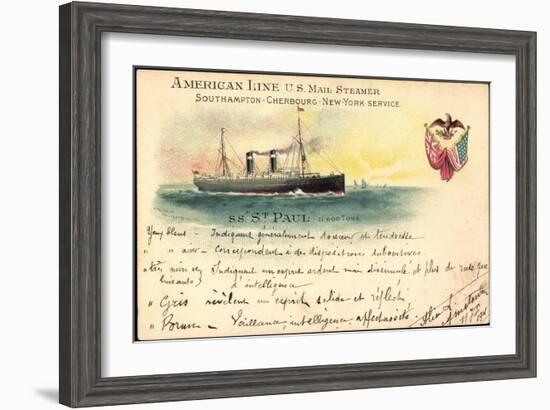 AMERICAN LINE U.S. MAIL STEAMER
SOUTHAMPTON-CHERBOURG-NEW-YORK SERVICE.
SS. ST PAUL 11.600 TONS.
Yeux bleus - Indiquent généralement douceur et tendresse
" " - Correspondent à des dispositions
" très noirs et Indiquent un esprit ardent mais dissimulé et plus de ruse que
luisants } d'intelligence
" Gris révèlent un esprit solide et réfléchi
" Bruns - Vaillance, intelligence,